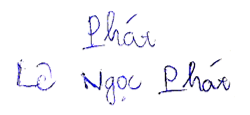 Phát
Lê Ngọc Phát